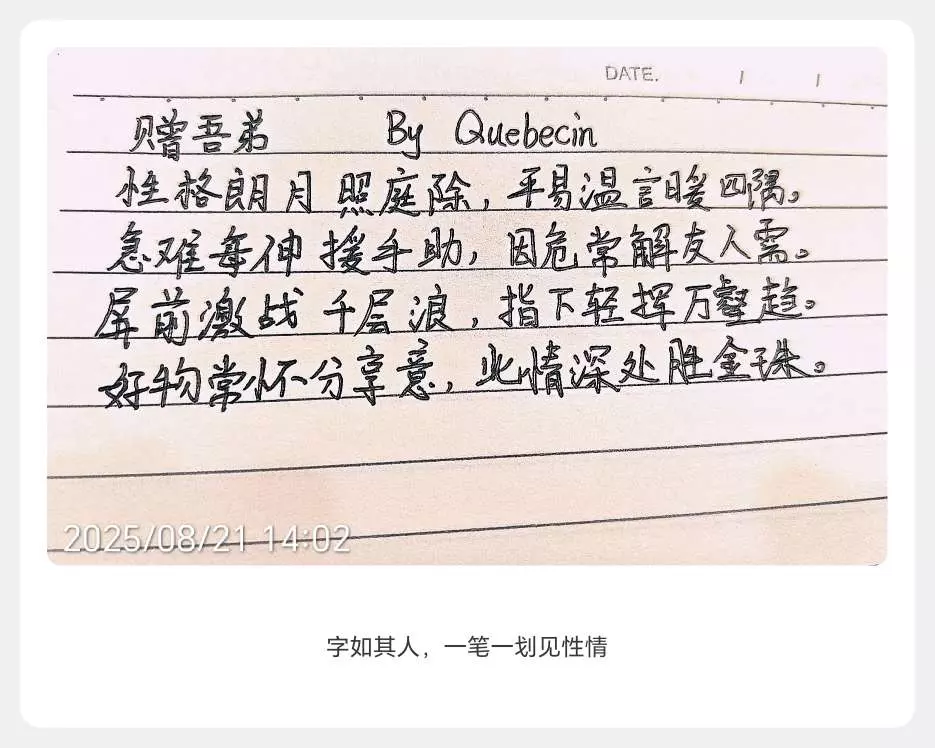 DATE. / /
赠吾弟 By Quebecin
性格朗月照庭除，平易温言暖四隅。
急难每伸援手助，因危常解友人需。
屏前激战千层浪，指下轻挥万壑趋。
好物常怀分享意，此情深处胜金珠。
2025/08/21 14:02
字如其人，一笔一划见性情